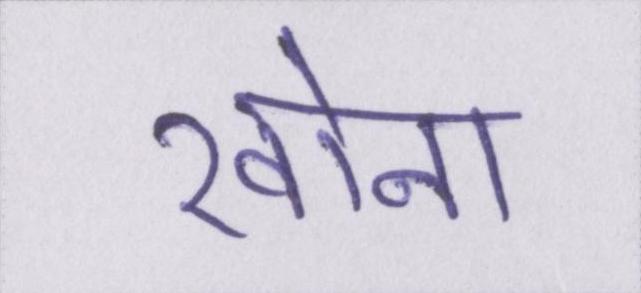 खोना